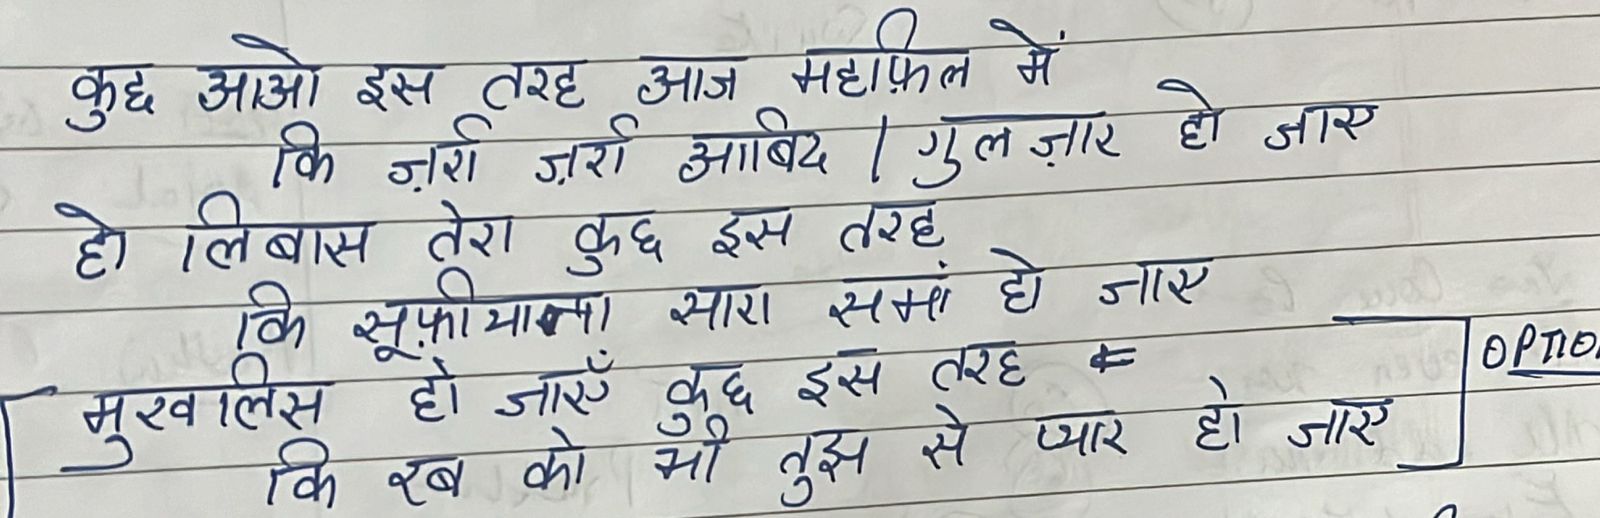 कुछ आओ इस तरह आज महफ़िल में
कि ज़र्रा ज़र्रा आबिद / गुलज़ार हो जाए
हो लिबास तेरा कुछ इस तरह
कि सूफ़ीयाना सारा समां हो जाए
मुखलिस हो जाएँ कुछ इस तरह
कि रब को भी तुझ से प्यार हो जाए